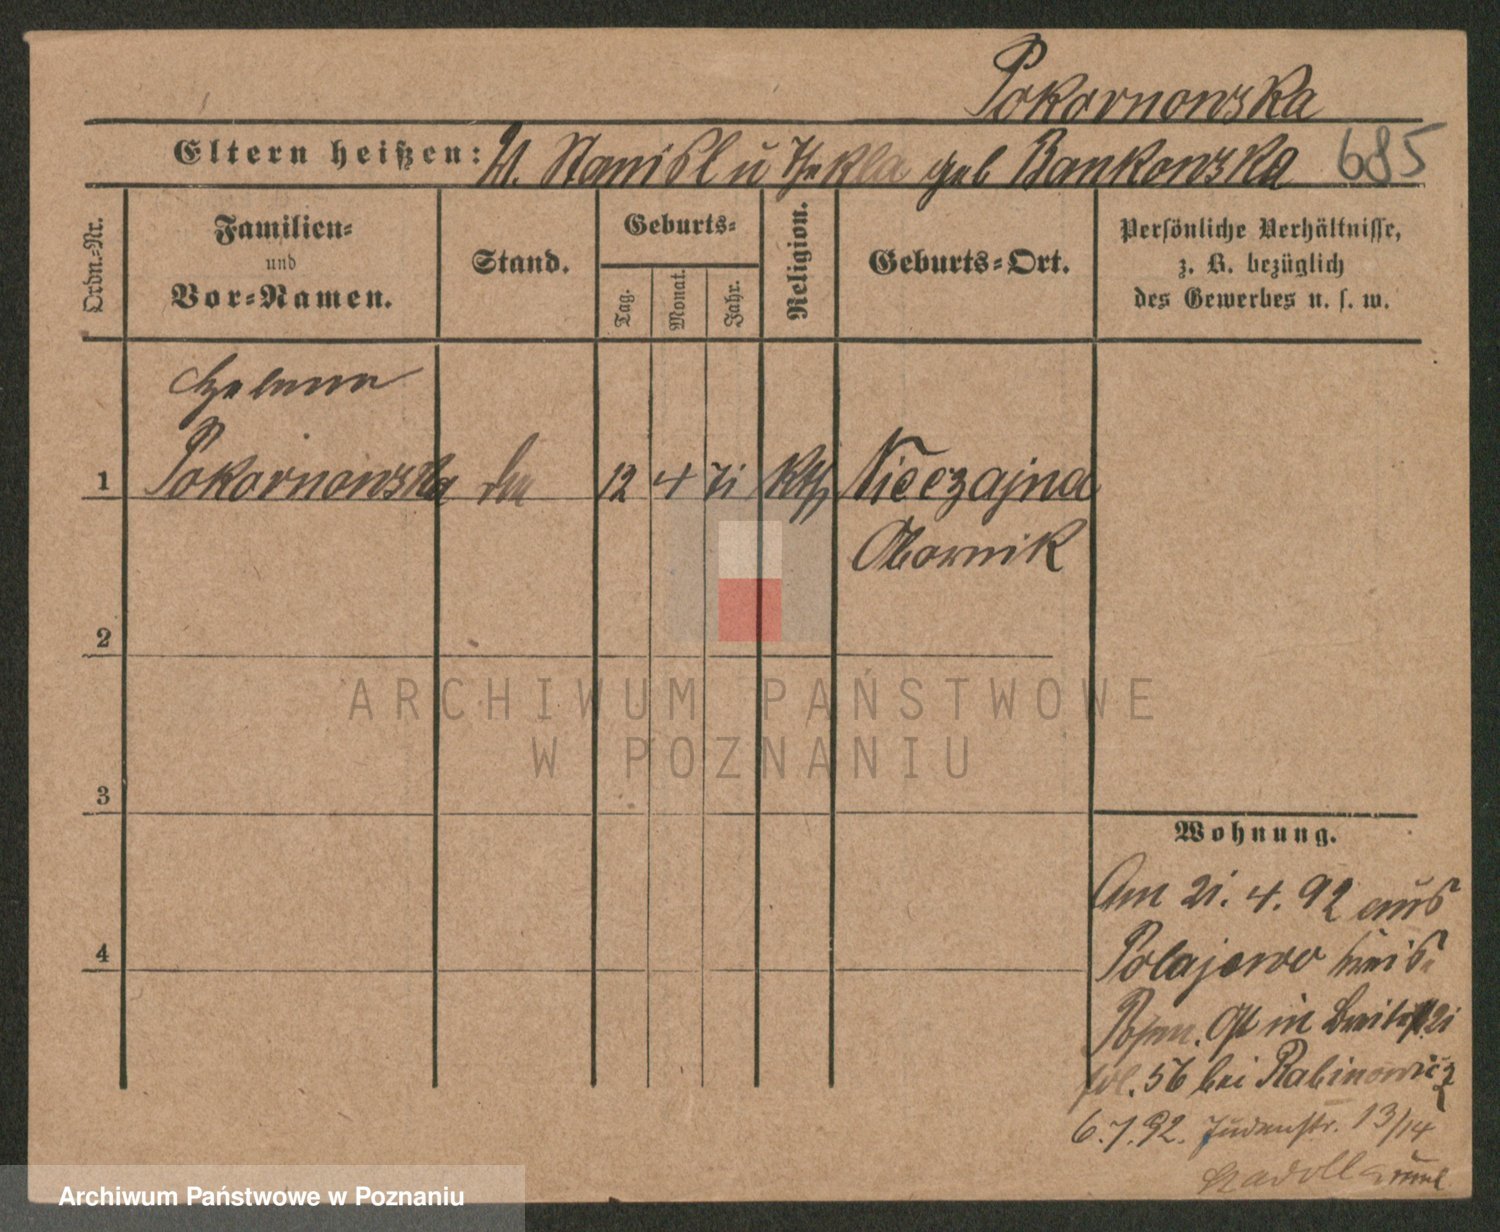 Pokornowska
Eltern heißen: A. Stanisl u Thekla geb Bankowska 685
Ordn.-Nr.
Familien-
und
Vor-Namen.
Stand.
Geburts-
Tag.
Monat.
Jahr.
Religion.
Geburts-Ort.
Persönliche Verhältnisse,
z. B. bezüglich
des Gewerbes u. s. w.
Helena
1 Pokornowska 12 4 71 Kth Nieczajna
Obornik
2
ARCHIWUM PAŃSTWOWE
W POZNANIU
3
Wohnung.
Am 21. 4. 92 aus
Polajewo Kreis
4
Posen. in Breitestr. 21
fol. 56 bei Rabinowicz
6.7.92. Judenstr. 13/14
Archiwum Państwowe w Poznaniu